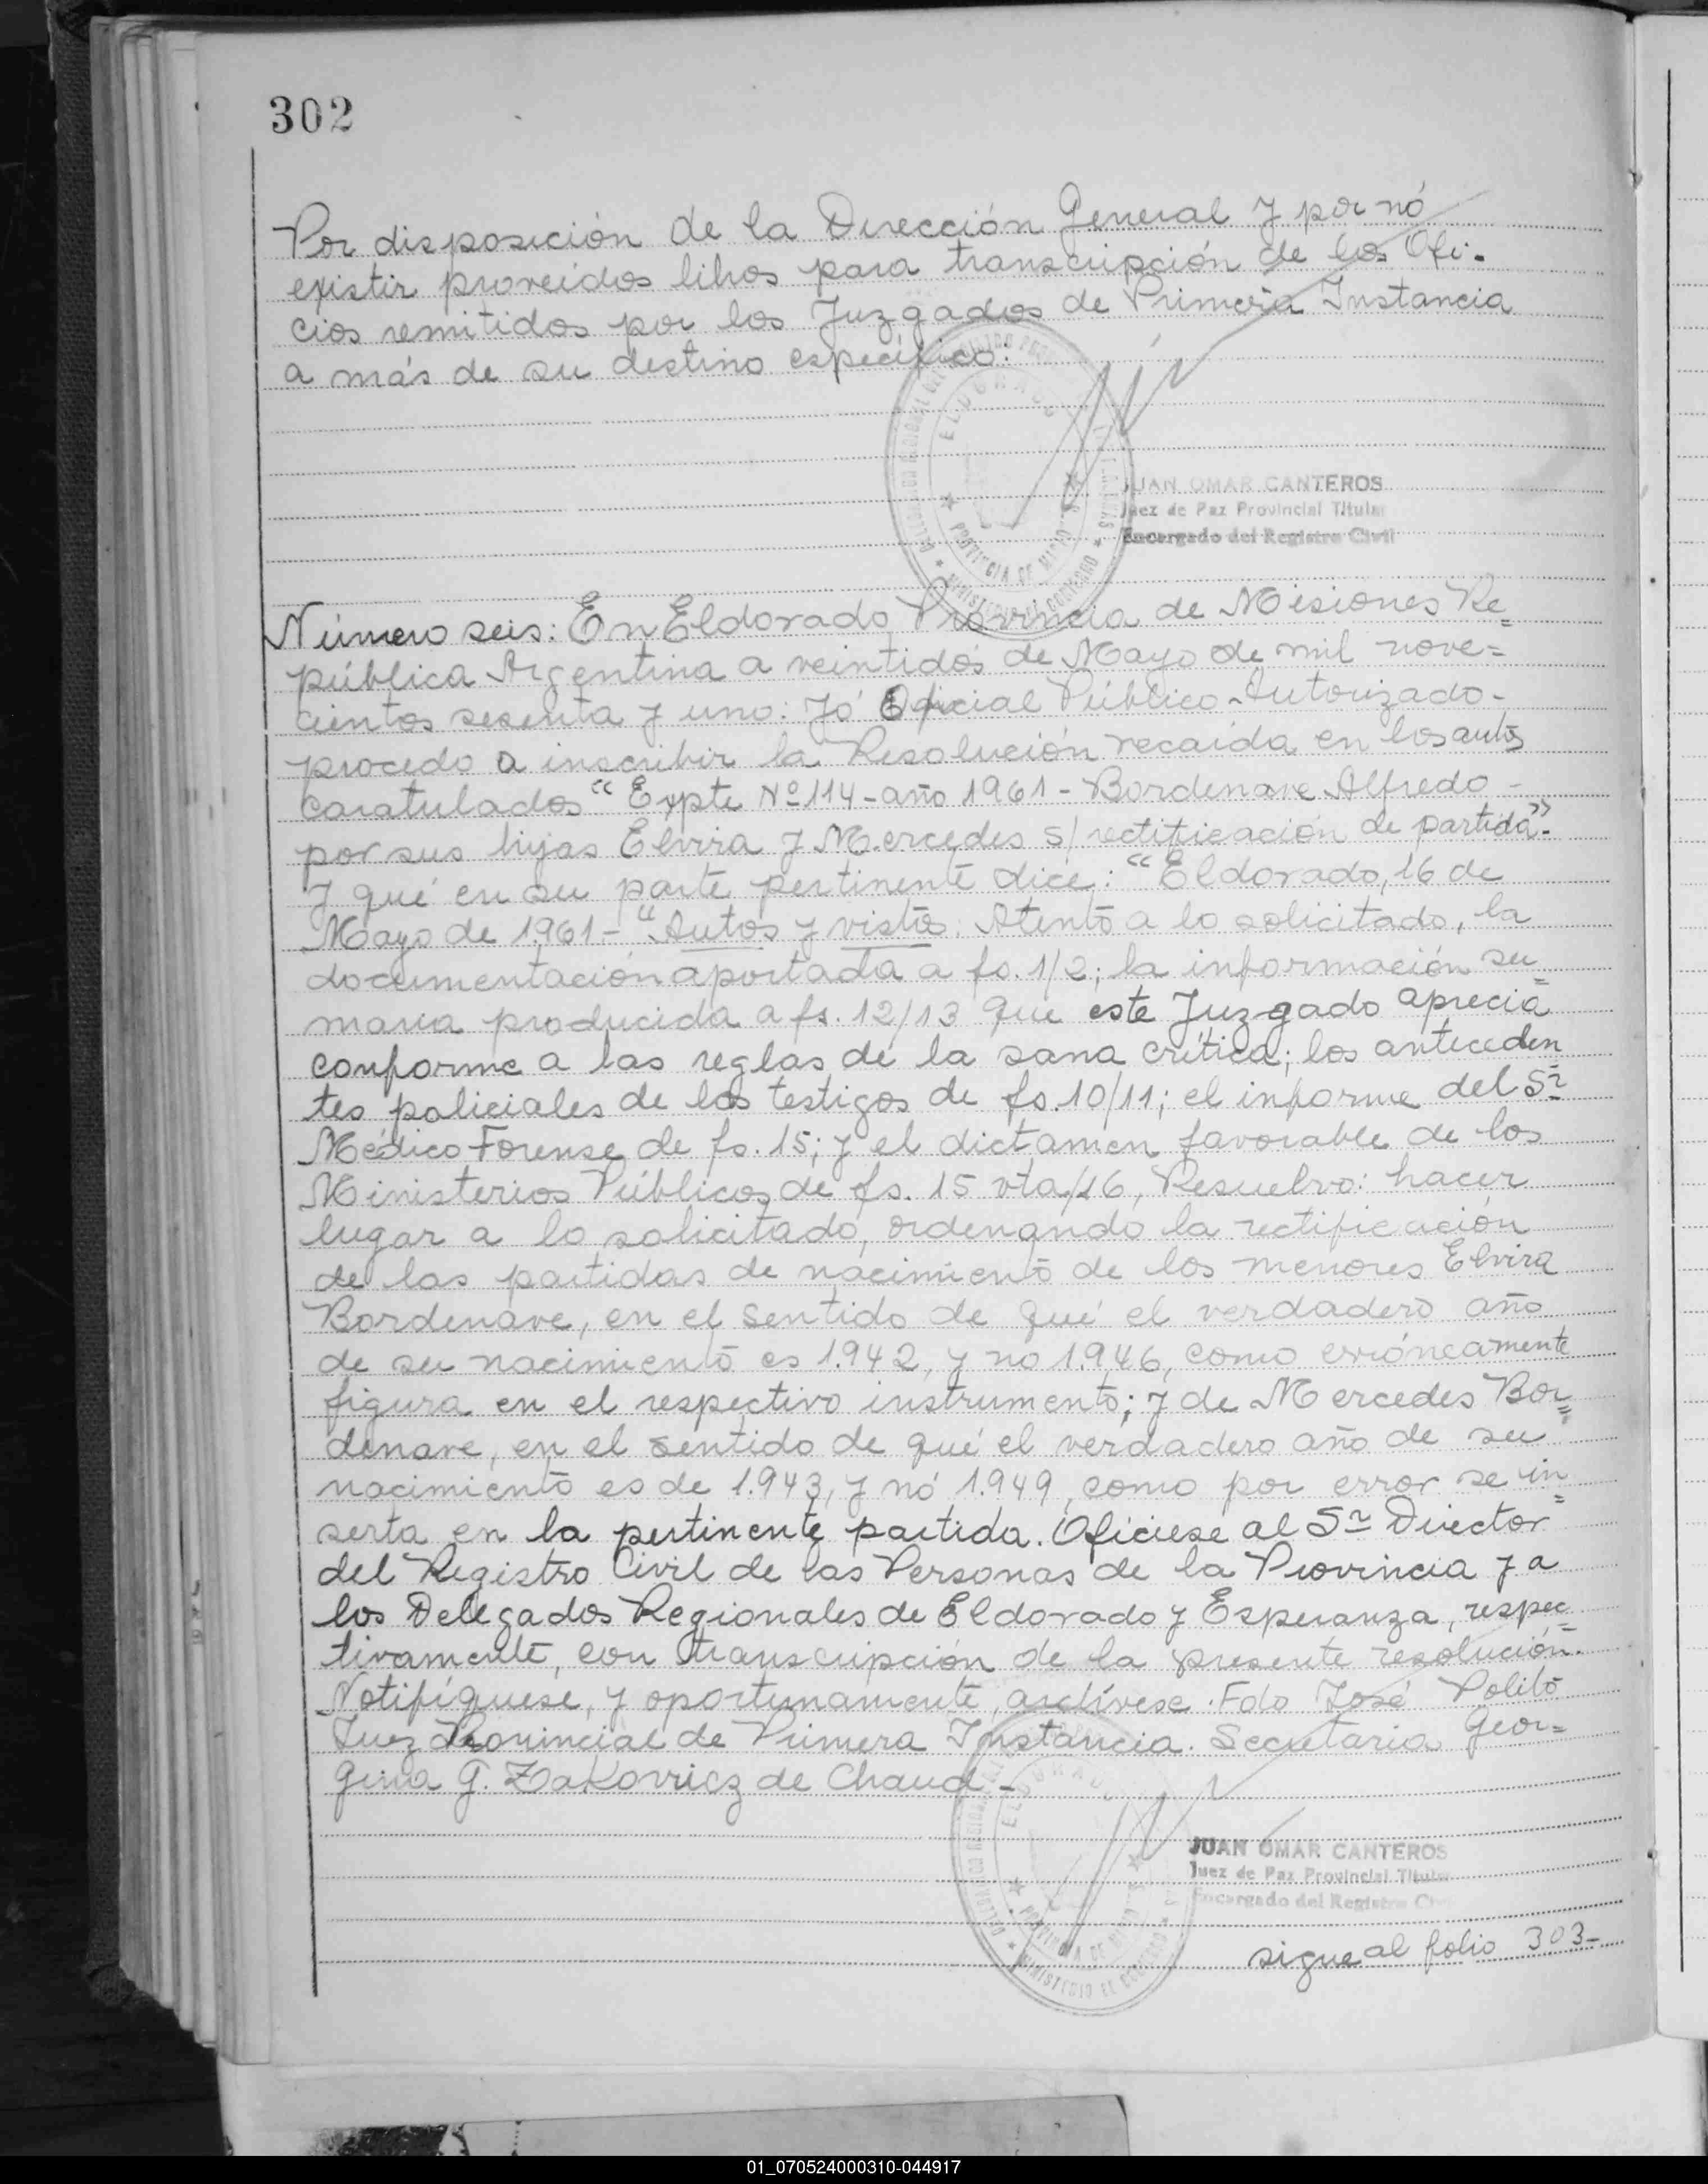 302
Por disposición de la Dirección General y por nó
existir proveidos libros para transcripción de los Ofi-
cios remitidos por los Juzgados de Primera Instancia
a más de su destino específico:
ELDORADO
PROVINCIA DE MISIONES
JUAN OMAR CANTEROS
Juez de Paz Provincial Titular
Encargado del Registro Civil
Número seis: En Eldorado Provincia de Misiones Re=
pública Argentina a veintidós de Mayo de mil nove=
cientos sesenta y uno: Yó Oficial Público Autorizado-
procedo a inscribir la Resolución recaída en los autos
caratulados "Expte Nº 114-año 1961-Bordenave Alfredo-
por sus hijas Elvira y Mercedes s/ rectificación de partida".
y qué en su parte pertinente dice: "Eldorado, 16 de
Mayo de 1961.- "Autos y vistos: Atento a lo solicitado, la
documentación aportada a fs. 1/2; la información su=
maria producida a fs. 12/13 que este Juzgado aprecia
conforme a las reglas de la sana crítica; los anteceden
tes policiales de los testigos de fs. 10/11; el informe del Sr
Médico Forense de fs. 15; y el dictamen favorable de los
Ministerios Públicos de fs. 15 vta/16, Resuelvo: hacer
lugar a lo solicitado, ordenando la rectificación
de las partidas de nacimiento de los menores Elvira
Bordenave, en el sentido de qué el verdadero año
de su nacimiento es 1.942, y no 1.946, como erróneamente
figura en el respectivo instrumento; y de Mercedes Bor=
denave, en el sentido de qué el verdadero año de su
nacimiento es de 1.943, y nó 1.949, como por error se in=
serta en la pertinente partida. Ofíciese al Sr Director
del Registro Civil de las Personas de la Provincia y a
los Delegados Regionales de Eldorado y Esperanza, respec=
tivamente, con transcripción de la presente resolución.
Notifíquese, y oportunamente, archívese. Fdo José Polito
Juez Provincial de Primera Instancia. Secretaria Geor=
gina G. Zakovricz de Chaud-
ELDORADO
PROVINCIA DE MISIONES
JUAN OMAR CANTEROS
Juez de Paz Provincial Titular
Encargado del Registro Civ
sigue al folio 303-
01_070524000310-044917